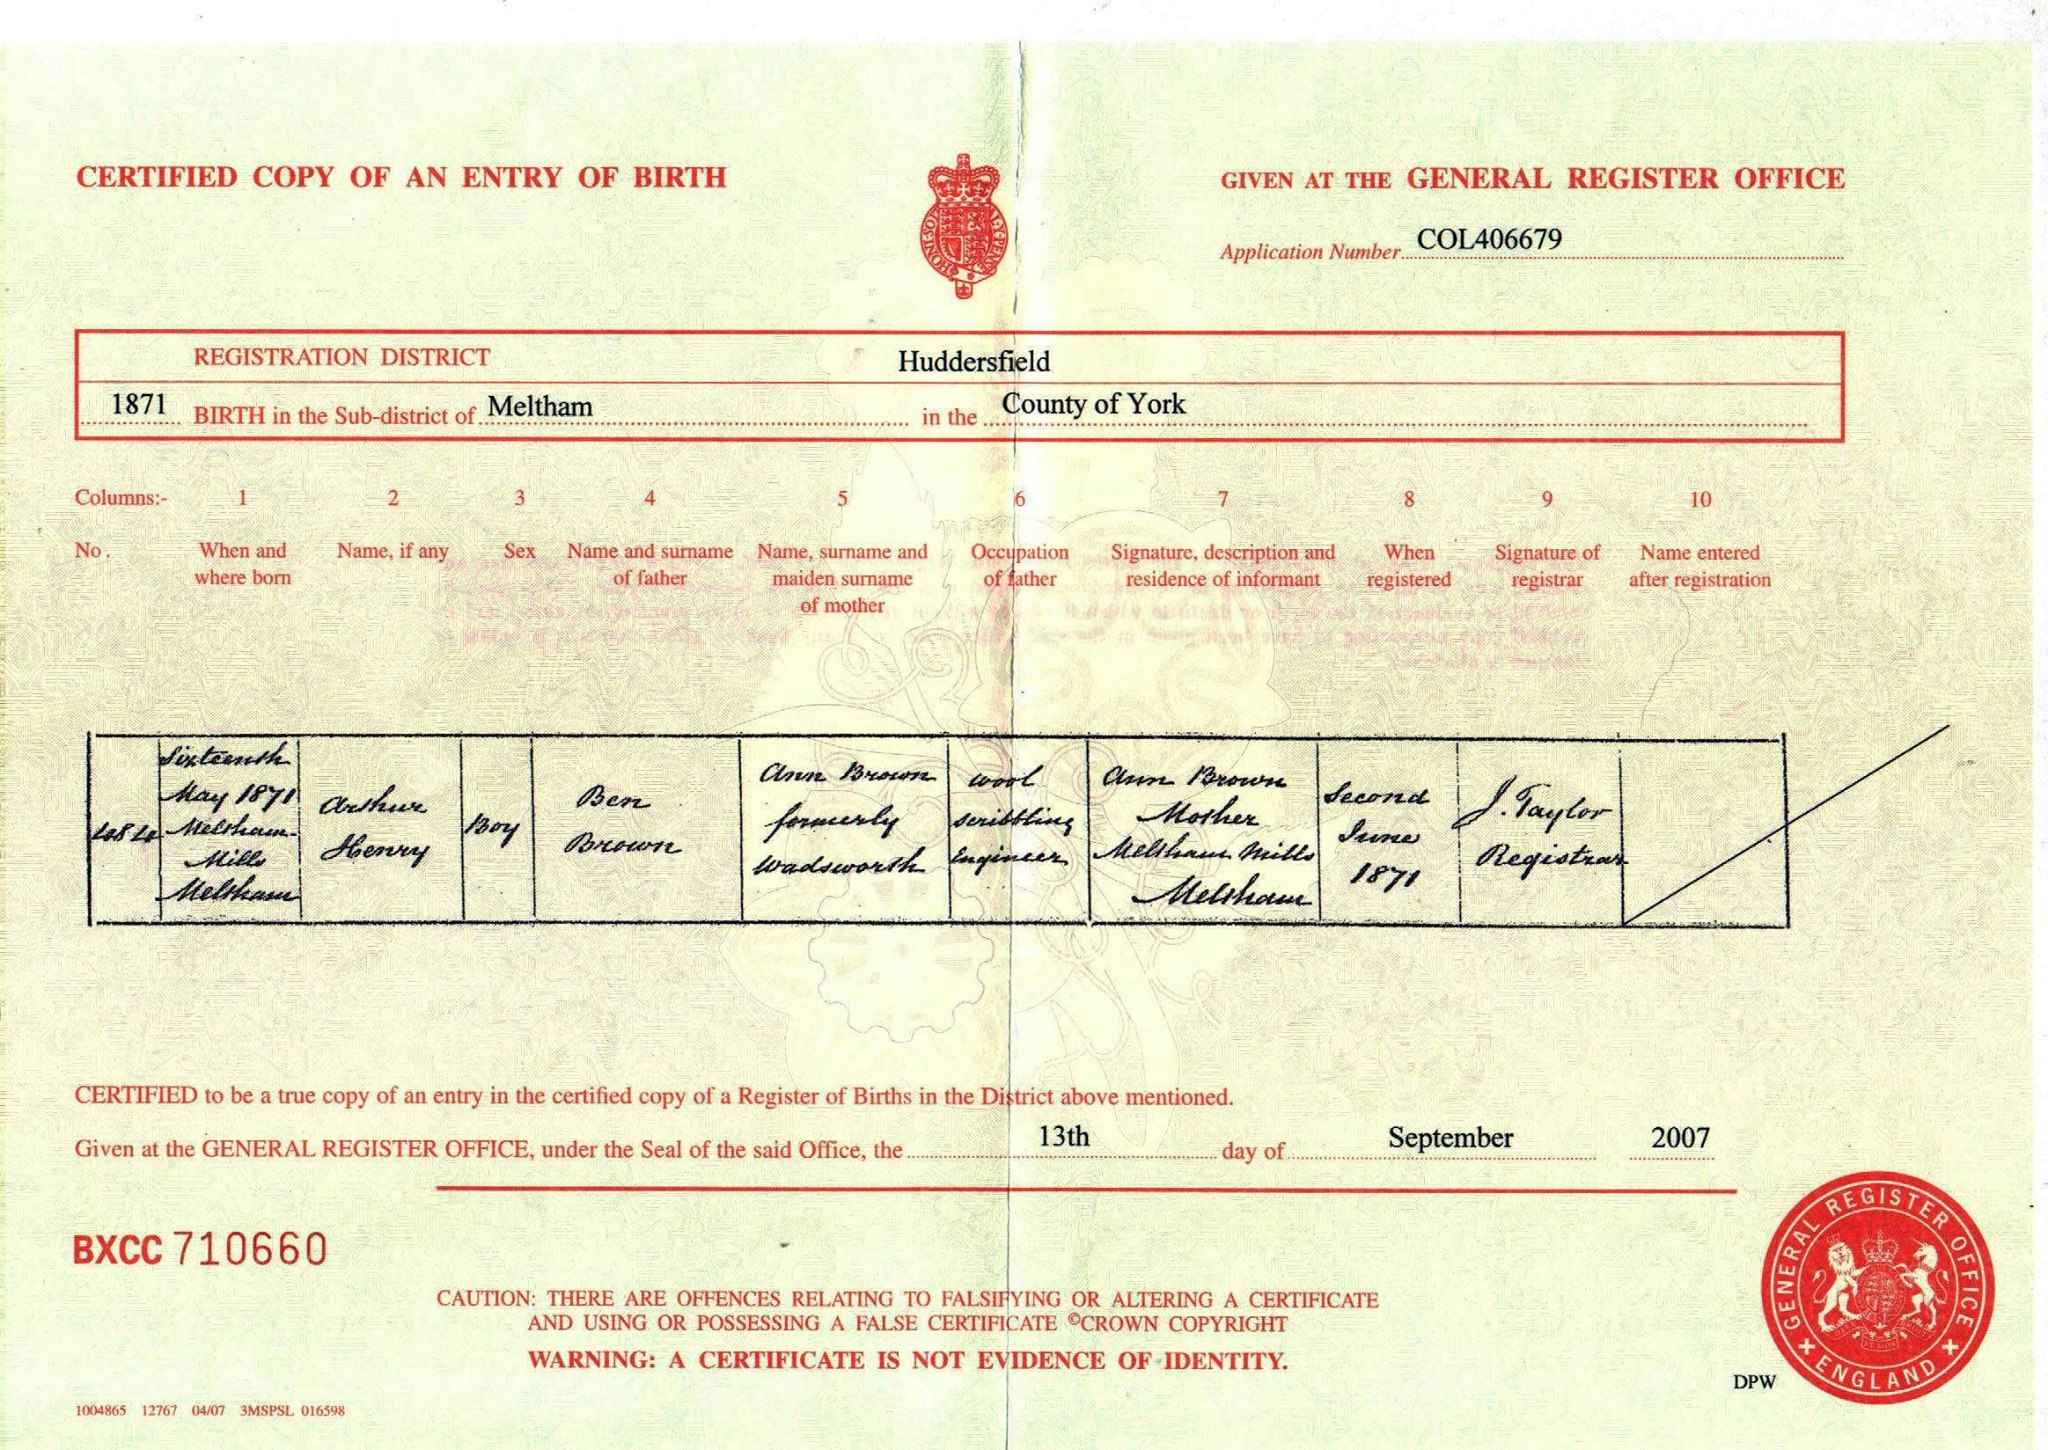 CERTIFIED COPY OF AN ENTRY OF BIRTH
GIVEN AT THE GENERAL REGISTER OFFICE
Application Number COL406679
REGISTRATION DISTRICT Huddersfield
1871 BIRTH in the Sub-district of Meltham in the County of York
Columns:- 1 2 3 4 5 6 7 8 9 10
No. When and where born
Name, if any
Sex
Name and surname of father
Name, surname and maiden surname of mother
Occupation of father
Signature, description and residence of informant
When registered
Signature of registrar
Name entered after registration
Sixteenth
May 1871
Meltham-
Mills
Meltham
Arthur
Henry
Boy
Ben
Brown
Ann Brown
formerly
Wadsworth
wool
scribbling
Engineer
Ann Brown
Mother
Meltham Mills
Meltham
Second
June
1871
J. Taylor
Registrar
CERTIFIED to be a true copy of an entry in the certified copy of a Register of Births in the District above mentioned.
Given at the GENERAL REGISTER OFFICE, under the Seal of the said Office, the 13th day of September 2007
BXCC 710660
CAUTION: THERE ARE OFFENCES RELATING TO FALSIFYING OR ALTERING A CERTIFICATE
AND USING OR POSSESSING A FALSE CERTIFICATE ©CROWN COPYRIGHT
WARNING: A CERTIFICATE IS NOT EVIDENCE OF IDENTITY.
GENERAL REGISTER OFFICE
ENGLAND
DPW
1004865 12767 04/07 3MSPSL 016598